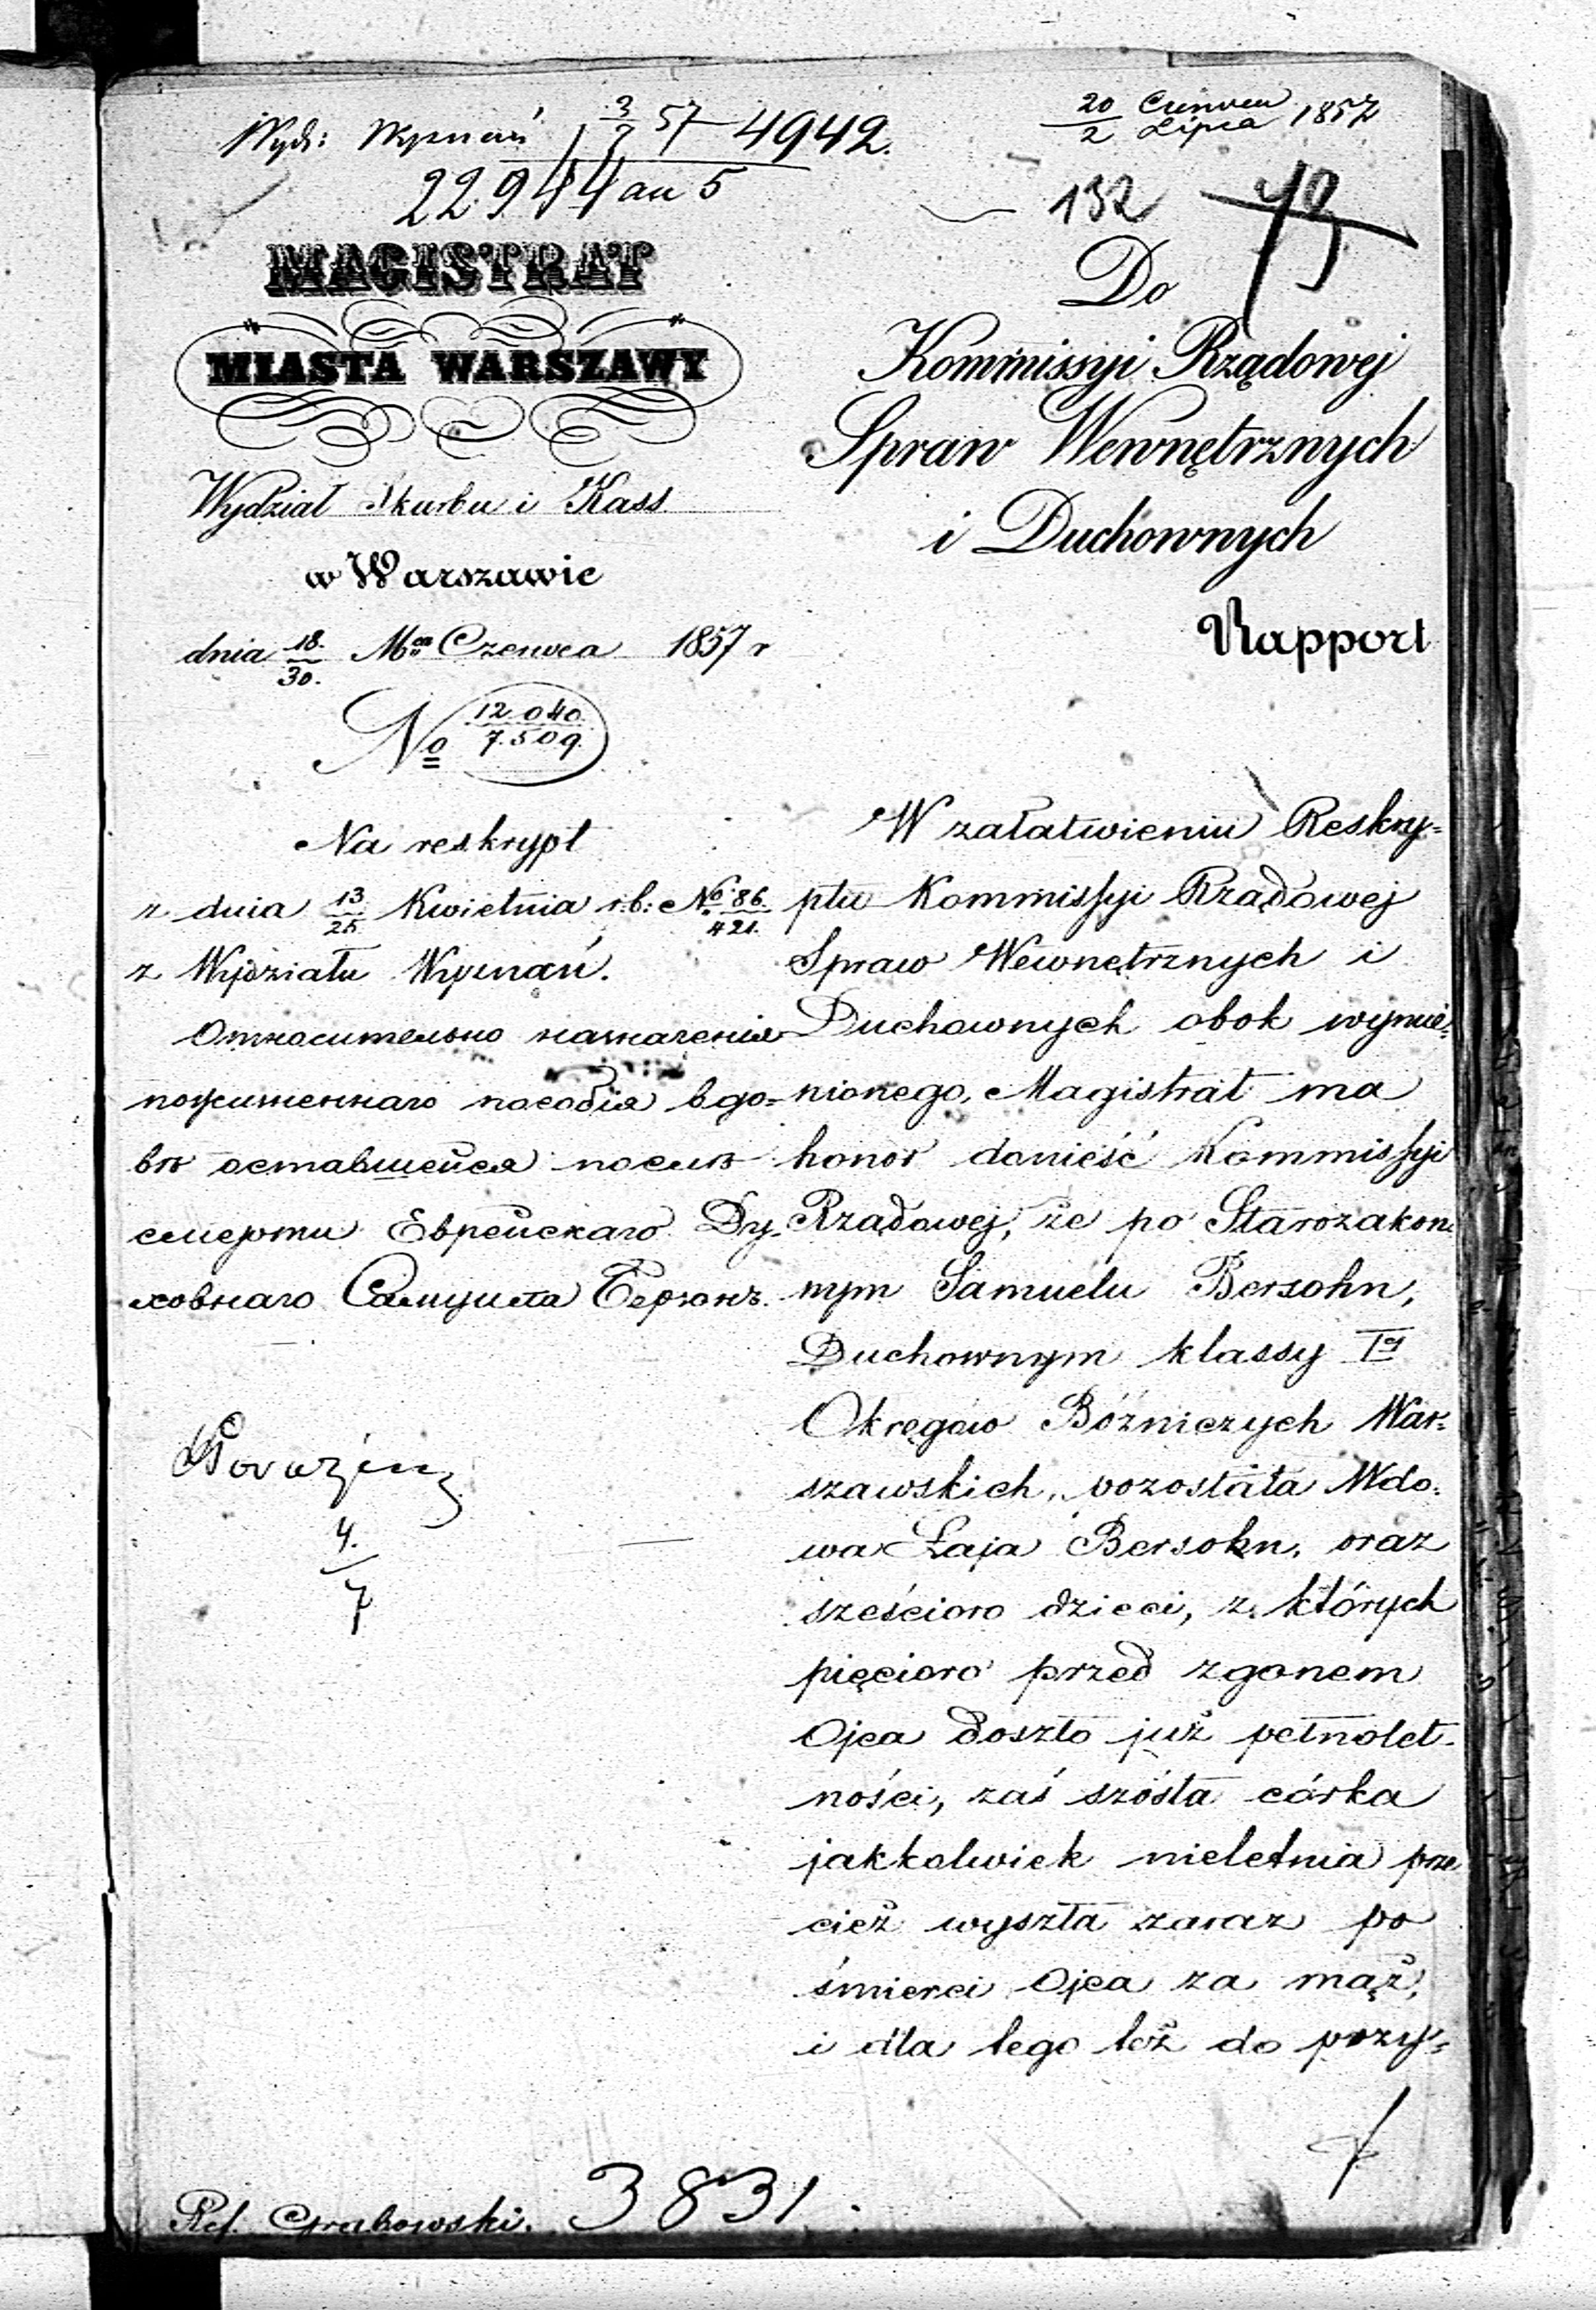 Wyd: Wyznań 3/7 57 4942.
22944 an 5
20/2 Czerwca/Lipca 1857
132
MAGISTRAT
MIASTA WARSZAWY
Wydział Skarbu i Kass
w Warszawie
dnia 18/30. Mca Czerwca 1857 r
No 12.040./7.509.
Na reskrypt
z dnia 13/25 Kwietnia r.b: No 86./421.
z Wydziału Wyznań.
Относительно назначенія
пожизненнаго пособія вдо=
вѣ оставшейся послѣ
смерти Еврейскаго Ду-
ховнаго Самуила Берзонъ.
4./7
Do
Kommissyi Rządowej
Spraw Wewnętrznych
i Duchownych
Rapport
W załatwieniu Reskry=
ptu Kommissyi Rządowej
Spraw Wewnętrznych i
Duchownych obok wymie=
nionego, Magistrat ma
honor donieść Kommissyi
Rządowej, że po Starozakon=
nym Samuelu Bersohn,
Duchownym klassy Iej
Okręgów Bóżniczych War=
szawskich, pozostała Wdo=
wa Łaja Bersohn, oraz
sześcioro dzieci, z których
pięcioro przed zgonem
Ojca doszło już pełnolet-
ności, zaś szósta córka
jakkolwiek nieletnia prze
cież wyszła zaraz po
śmierci Ojca za mąż,
i dla tego też do pozy=
Ref. Grabowski. 3831.